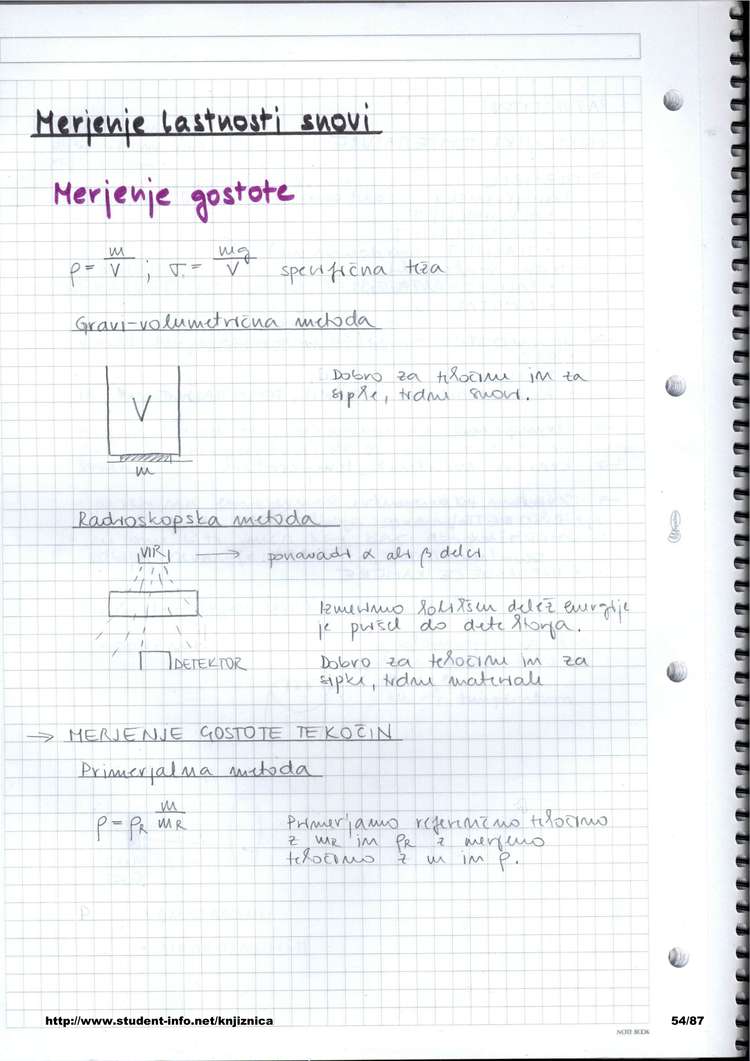 Merjenje lastnosti snovi
Merjenje gostote
ρ = m/V ; σ = mg/V specifična teža
Gravi-volumetrična metoda
V
m
Dobro za tekočine in za
sipke, trdne snovi.
Radioskopska metoda
VIR → ponavadi α ali β delci
Izmerimo kolikšen delež energije
je prišel do detektorja.
DETEKTOR
Dobro za tekočine in za
sipke, trdne materiale
→ MERJENJE GOSTOTE TEKOČIN
Primerjalna metoda
ρ = ρR m/mR
Primerjamo referenčno tekočino
z mR in ρR z merjeno
tekočino z m in ρ.
http://www.student-info.net/knjiznica
54/87
NOTE BOOK